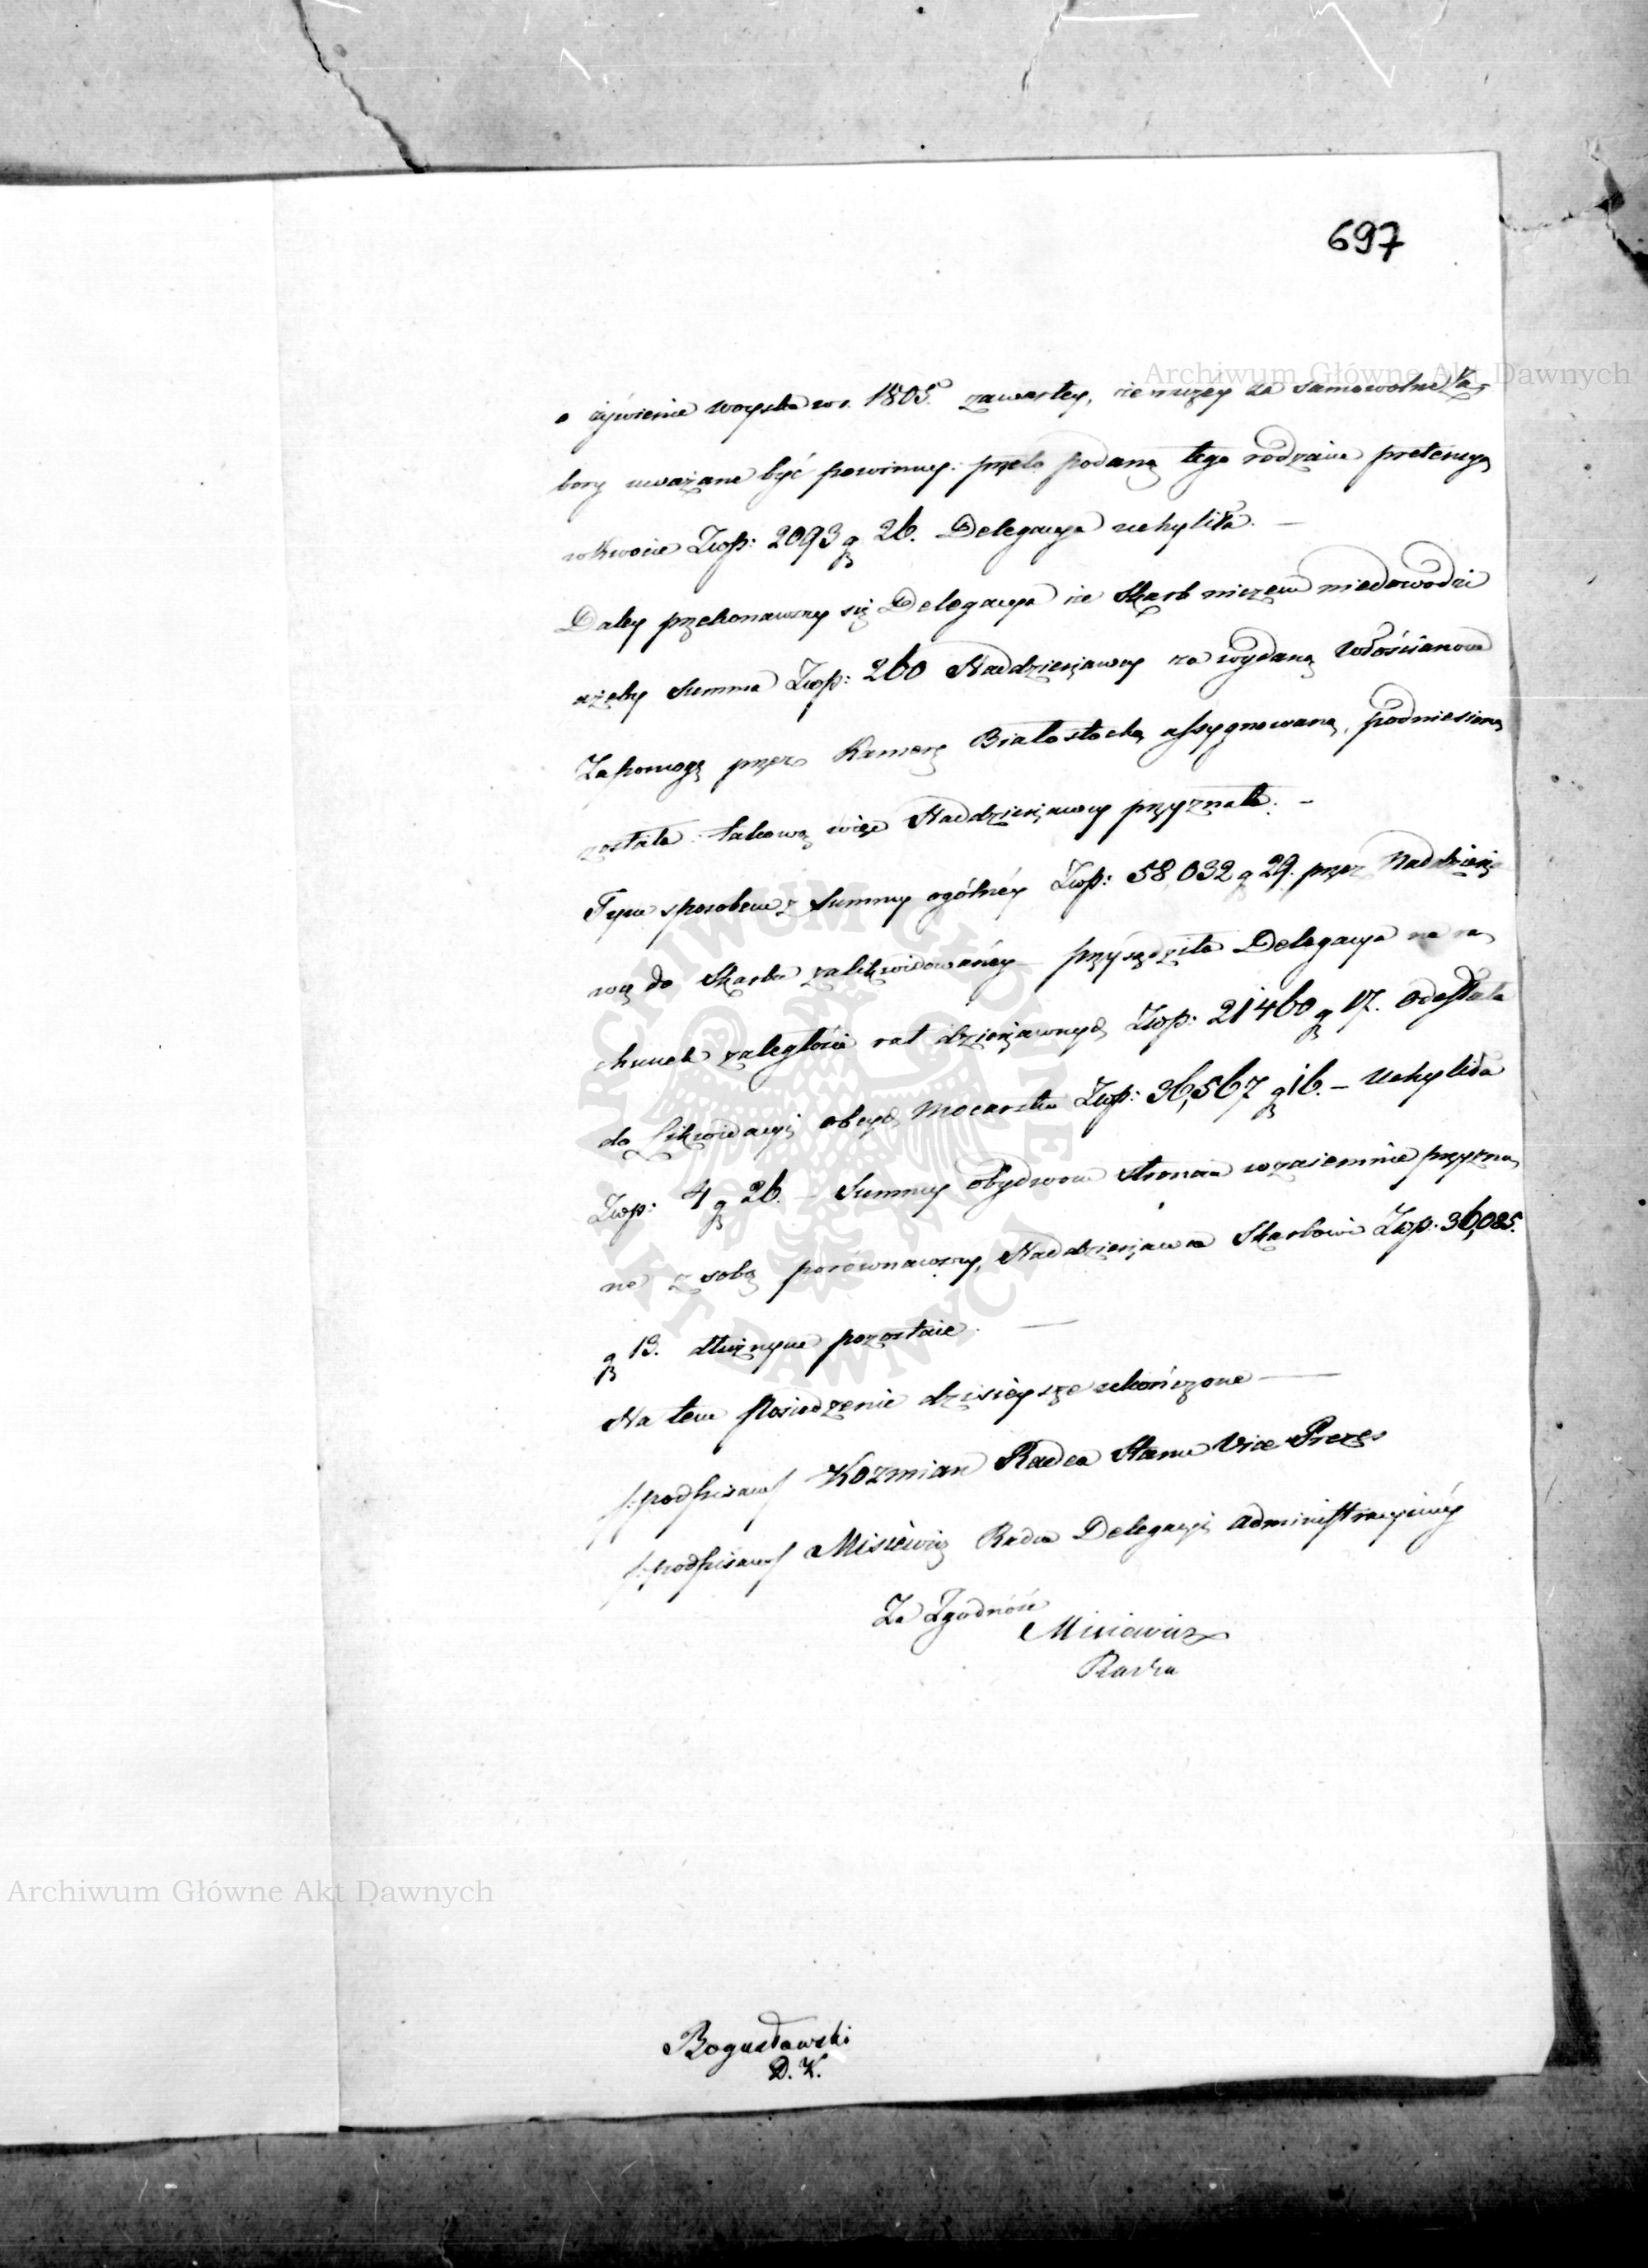 697
Archiwum Główne Akt Dawnych
o żywienie woyska w r. 1805. zawartey, za samowolne za
bory uważane być powinny: przeto podaną tego rodzaiu pretensyą
w kwocie Złp: 2093 gr 26. Delegacya uchyliła. —
Daley przekonawszy się Delegacya że Skarb niczem niedowodzi
ażeby Summa Złp: 260 Naddzierżawcy za wydaną Włościanom
Zapomogę przez Kamerę Białostocką assygnowana, podniesioną
została: takową więc Naddzierżawcy przyznała. —
Tym sposobem z Summy ogólnéy Złp: 58,032 gr 29. przez Naddzierża
wcę do Skarbu zalikwidowanéy przysądziła Delegacya na ra
chunek zaległości rat dzierżawnych Złp: 21460 gr 17. Odesłała
do Likwidacyi obcych Mocarstw Złp: 36,567 gr 16. — Uchyliła
Złp: 4 gr 26. — Summy obydwom stronom wzaiemnie przyzna
ne z sobą porównawszy, Naddzierżawca Skarbowi Złp: 36,085.
gr 13. dłużnym pozostaie. —
Na tem Posiedzenie dzisieysze ukończone —
/:podpisano/ Kozmian Radca Stanu Vice Prezes
/:podpisano/ Misiewicz Radca Delegacyi Administracyinéy
Za Zgodność
Misiewicz
Radca
Archiwum Główne Akt Dawnych
Bogusławski
D. K.
ARCHIWUM GŁÓWNE AKT DAWNYCH